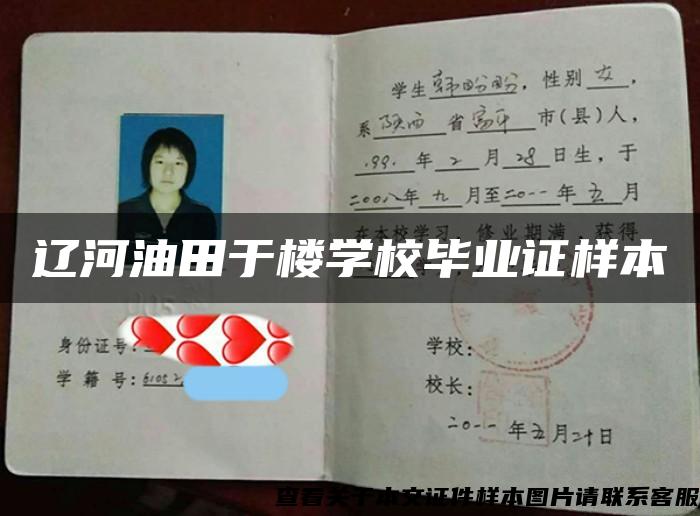 学生韩盼盼，性别女，
系陕西省富平市(县)人，
1991年2月28日生，于
二00八年九月至二0一一年五月
在本校学习，修业期满，获得
辽河油田于楼学校毕业证样本
身份证号：
学籍号：61052
学校：
校长：
二0一一年五月二十日
查看关于本文证件样本图片请联系客服